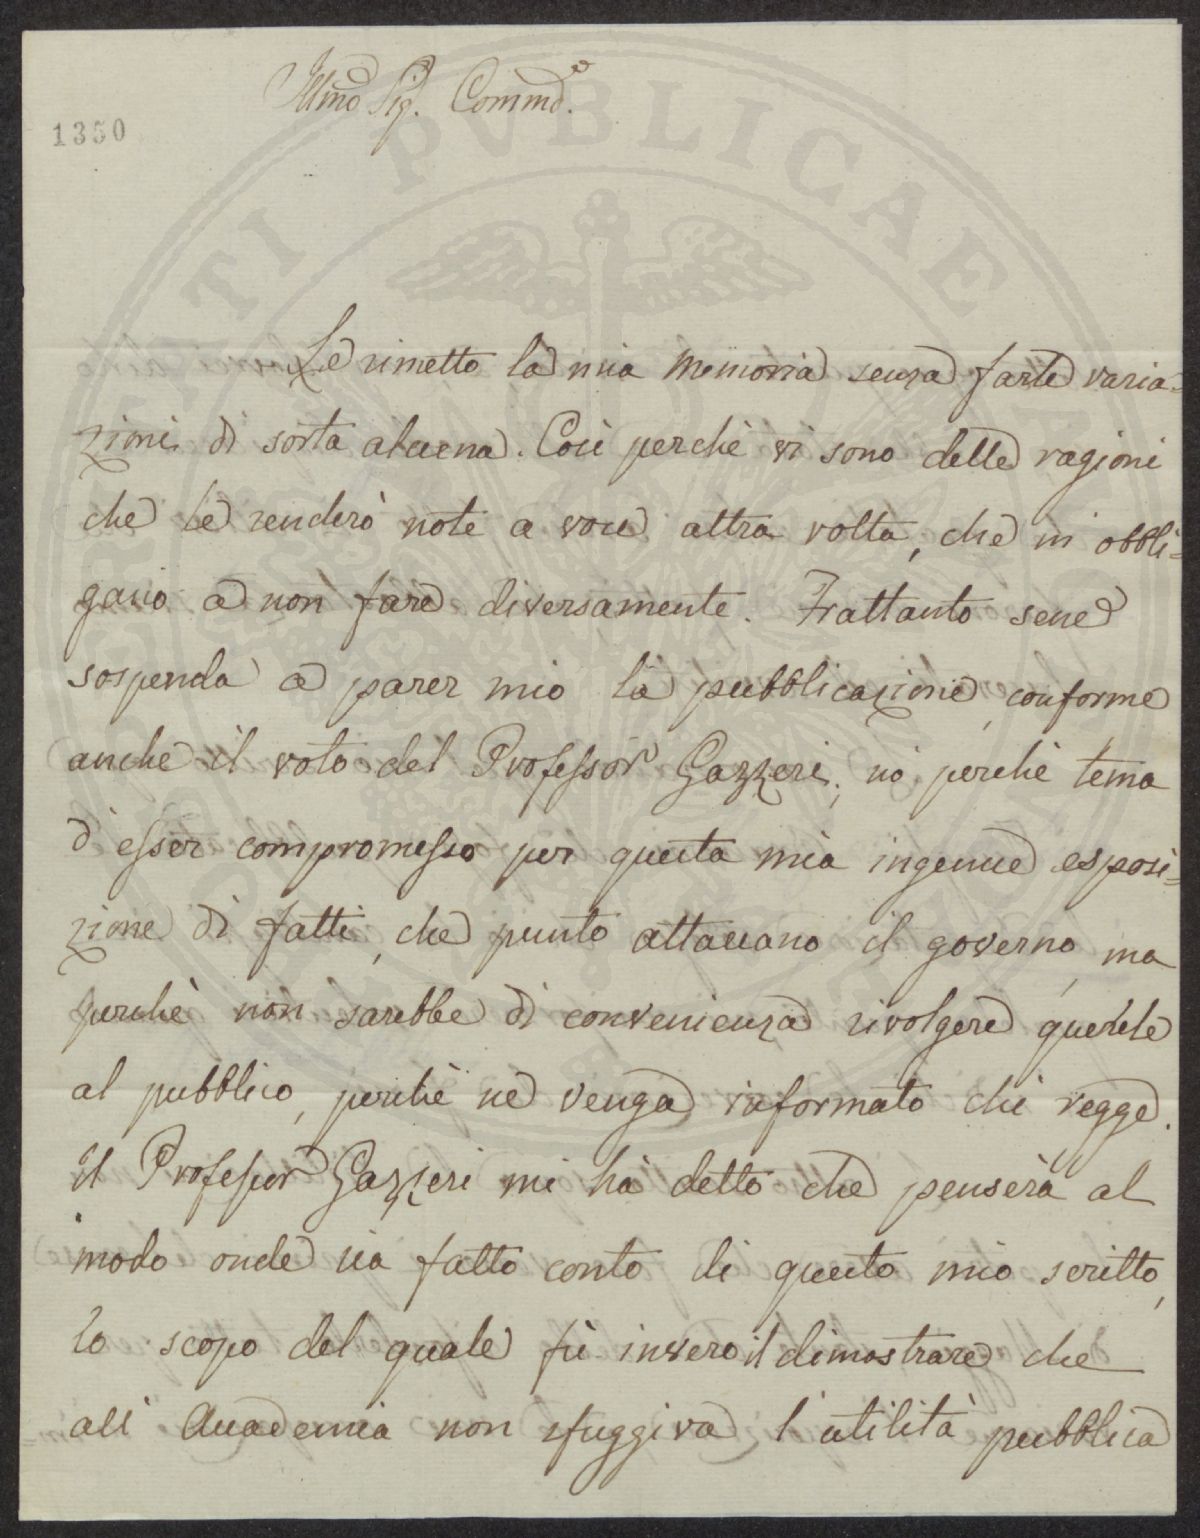 Illmo Sig. Commd.e
1350
Le rimetto la mia Memoria senza farle varia=
zioni di sorta alcuna. Così perchè vi sono delle ragioni
che Le renderò note a voce altra volta, che mi obbli=
gano a non fare diversamente. Frattanto sene
sospenda a parer mio la pubblicazione, conforme
anche il voto del Professor Gazzeri; no perchè tema
d'esser compromesso per questa mia ingenue esposi=
zione di fatti, che punto attaccano il governo, ma
perchè non sarebbe di convenienza rivolgere querele
al pubblico, perchè ne venga informato chi regge.
Il Professor Gazzeri mi hà detto che penserà al
modo onde sia fatto conto di questo mio scritto,
lo scopo del quale fù invero il dimostrare che
all'Accademia non sfuggiva l'utilità pubblica